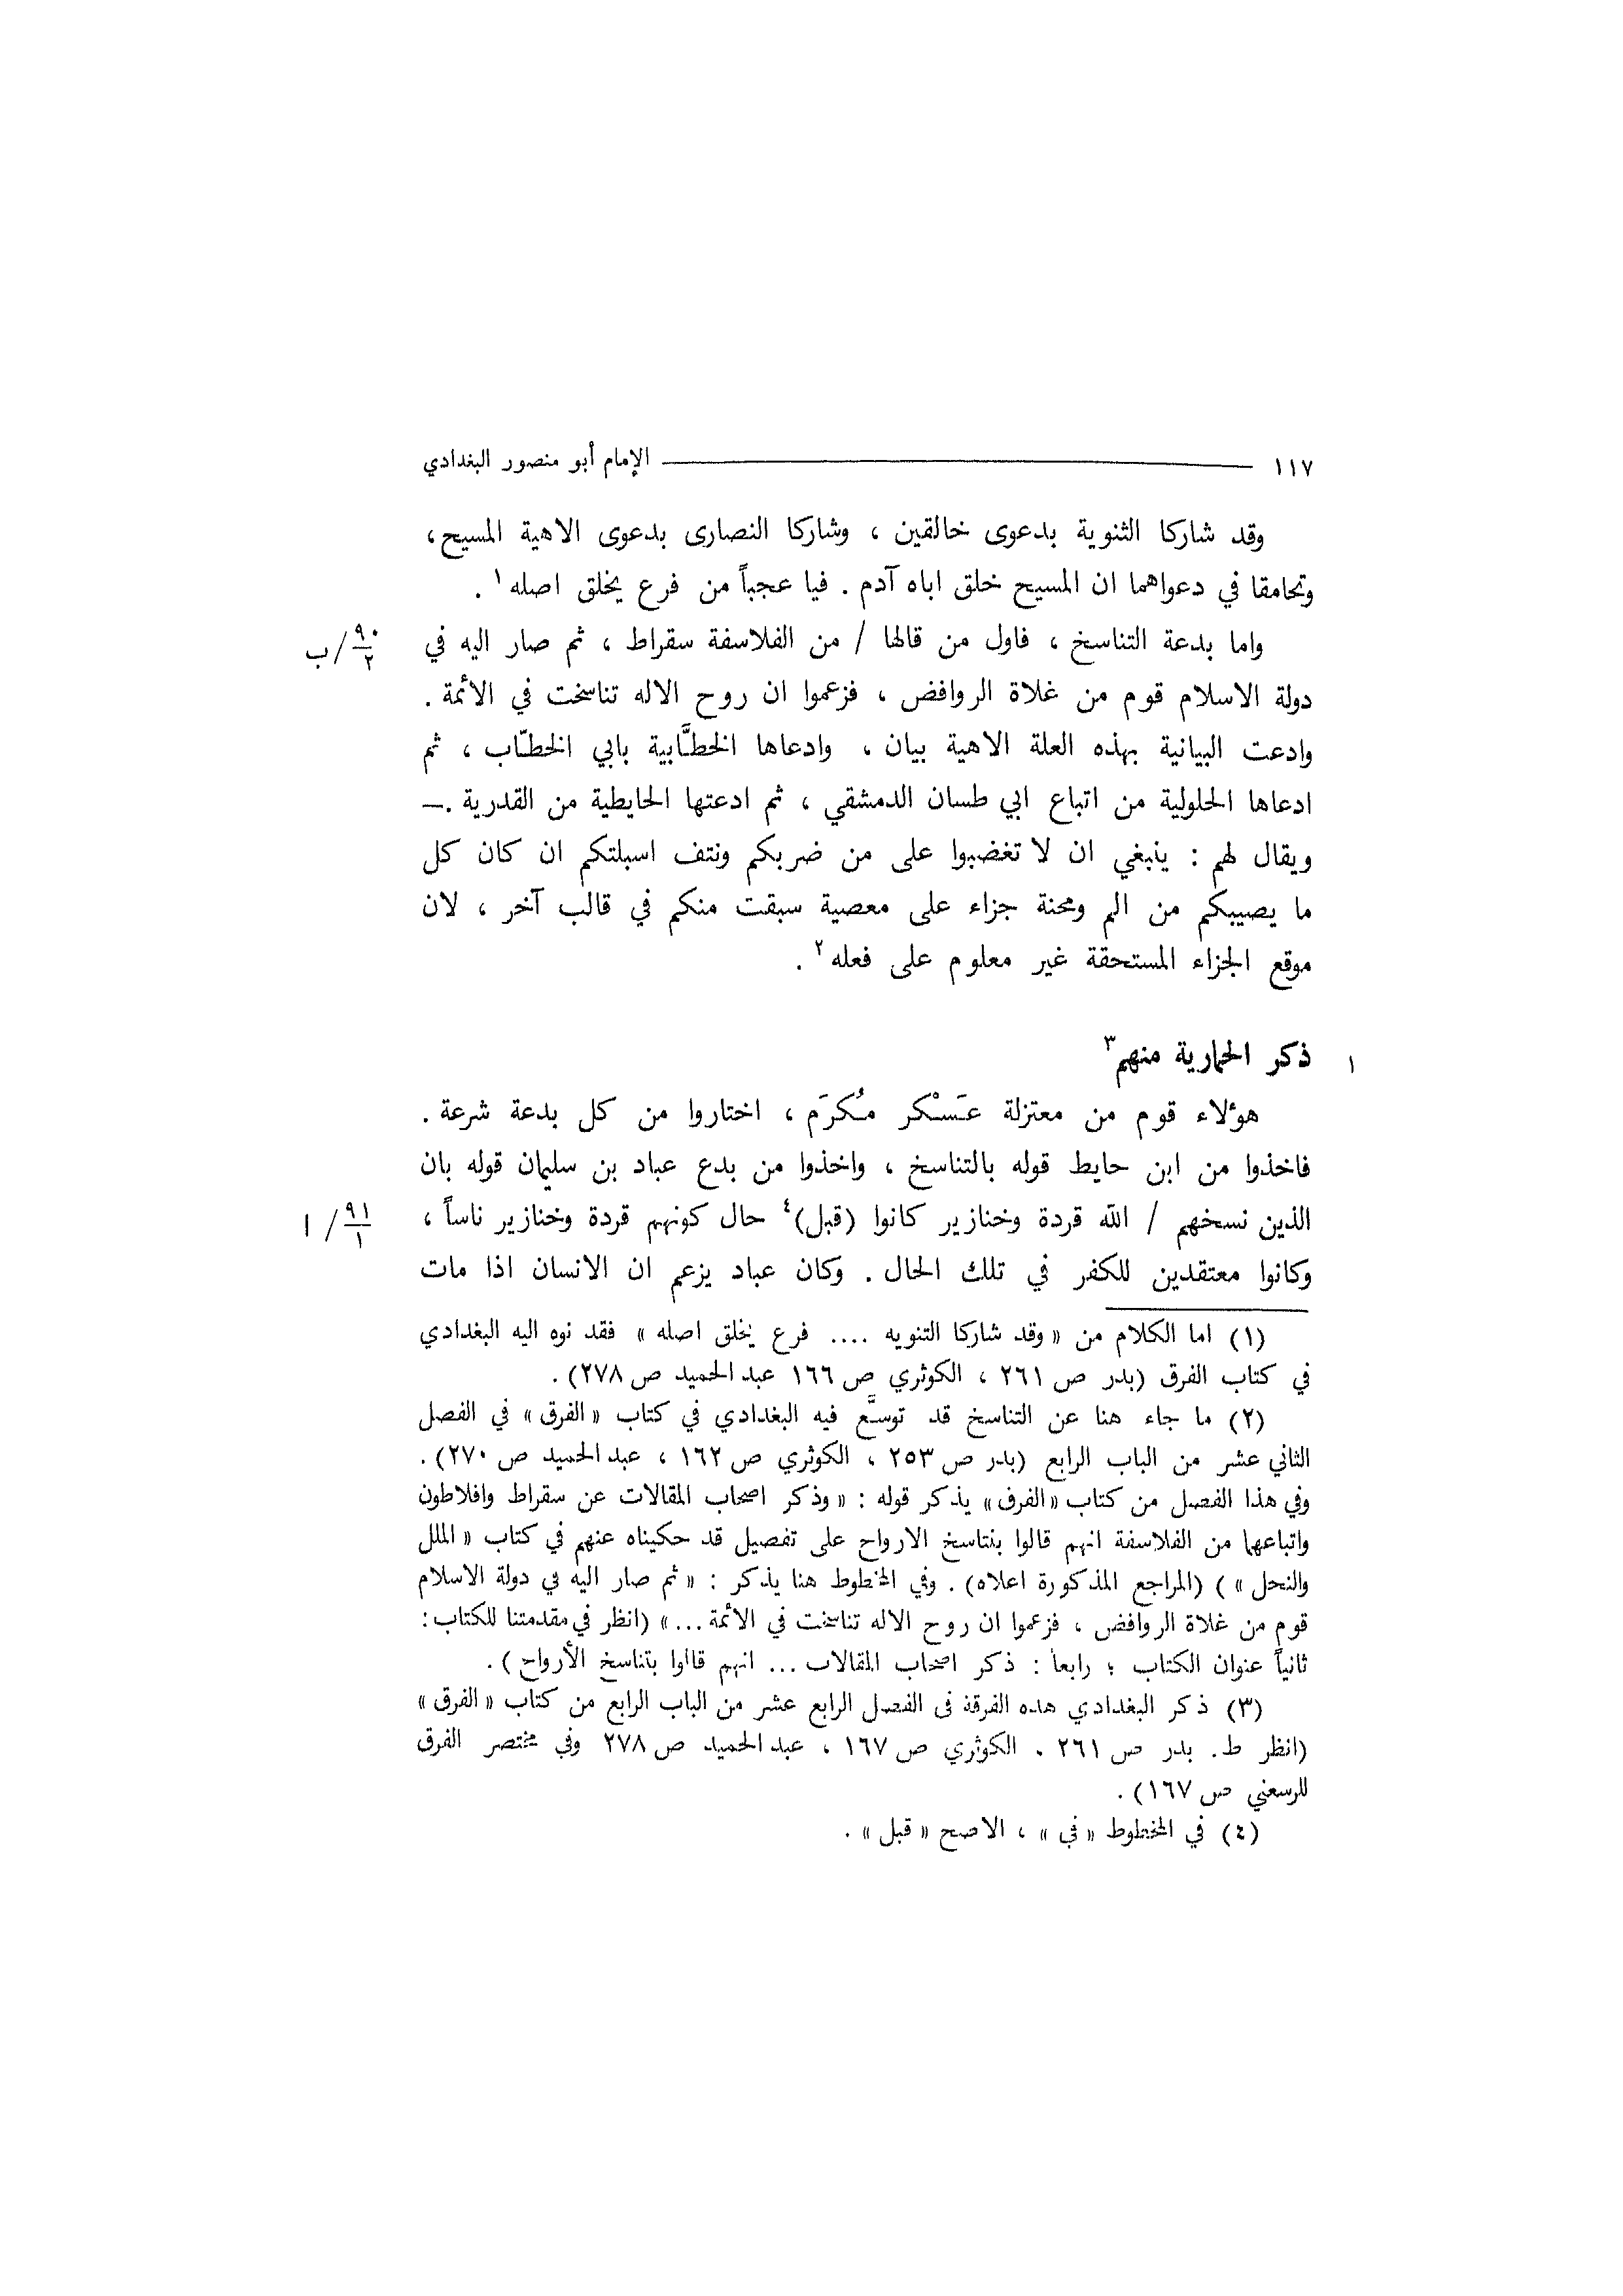 ١١٧ الإمام أبو منصور البغدادي
وقد شاركا الثنوية بدعوى خالقين ، وشاركا النصارى بدعوى الاهية المسيح ،
وتحامقا في دعواهما ان المسيح خلق اباه آدم . فيا عجباً من فرع يخلق اصله١ .
واما بدعة التناسخ ، فاول من قالها / من الفلاسفة سقراط ، ثم صار اليه في
٩٠/٢ / ب
دولة الاسلام قوم من غلاة الروافض ، فزعموا ان روح الاله تناسخت في الأئمة .
وادعت البيانية بهذه العلة الاهية بيان ، وادعاها الخطَّابية بابي الخطّاب ، ثم
ادعاها الحلولية من اتباع ابي طسان الدمشقي ، ثم ادعتها الحايطية من القدرية .—
ويقال لهم : ينبغي ان لا تغضبوا على من ضربكم ونتف اسبلتكم ان كان كل
ما يصيبكم من الم ومحنة جزاء على معصية سبقت منكم في قالب آخر ، لان
موقع الجزاء المستحقة غير معلوم على فعله٢ .
١ ذكر الحمارية منهم٣
هؤلاء قوم من معتزلة عَسْكر مُكرَم ، اختاروا من كل بدعة شرعة .
فاخذوا من ابن حايط قوله بالتناسخ ، واخذوا من بدع عباد بن سليمان قوله بان
الذين نسخهم / الله قردة وخنازير كانوا (قبل)٤ حال كونهم قردة وخنازير ناساً ،
٩١/١ / ا
وكانوا معتقدين للكفر في تلك الحال . وكان عباد يزعم ان الانسان اذا مات
(١) اما الكلام من « وقد شاركا التنويه .... فرع يخلق اصله » فقد نوه اليه البغدادي
في كتاب الفرق (بدر ص ٢٦١ ، الكوثري ص ١٦٦ عبد الحميد ص ٢٧٨) .
(٢) ما جاء هنا عن التناسخ قد توسَّع فيه البغدادي في كتاب « الفرق » في الفصل
الثاني عشر من الباب الرابع (بدر ص ٢٥٣ ، الكوثري ص ١٦٢ ، عبد الحميد ص ٢٧٠) .
وفي هذا الفصل من كتاب « الفرق » يذكر قوله : « وذكر اصحاب المقالات عن سقراط وافلاطون
واتباعهما من الفلاسفة انهم قالوا بتناسخ الارواح على تفصيل قد حكيناه عنهم في كتاب « الملل
والنحل » ) (المراجع المذكورة اعلاه) . وفي المخطوط هنا يذكر : « ثم صار اليه في دولة الاسلام
قوم من غلاة الروافض ، فزعموا ان روح الاله تناسخت في الأئمة ... » (انظر في مقدمتنا للكتاب :
ثانياً عنوان الكتاب ؛ رابعاً : ذكر اصحاب المقالات ... انهم قالوا بتناسخ الأرواح ) .
(٣) ذكر البغدادي هذه الفرقة في الفصل الرابع عشر من الباب الرابع من كتاب « الفرق »
(انظر ط. بدر ص ٢٦١ . الكوثري ص ١٦٧ ، عبد الحميد ص ٢٧٨ وفي مختصر الفرق
للرسعني ص ١٦٧) .
(٤) في المخطوط « في » ، الاصح « قبل » .